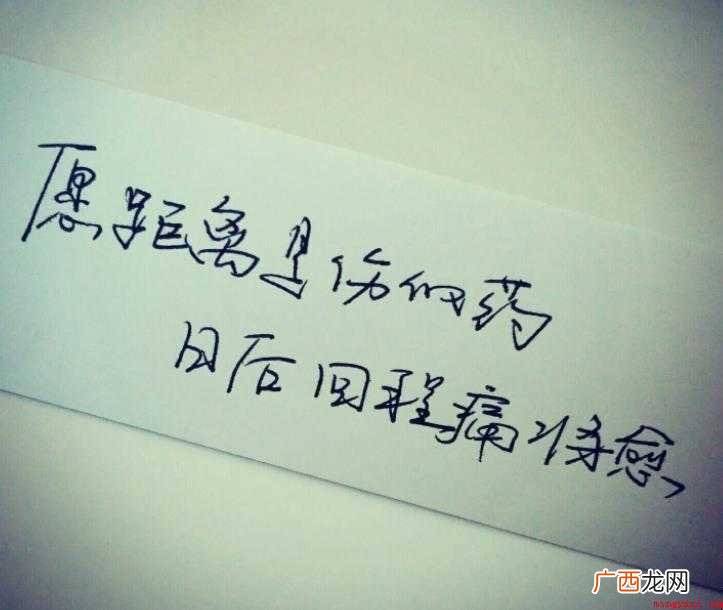 愿距离是伤的药
日后回程痛将愈
广西龙网